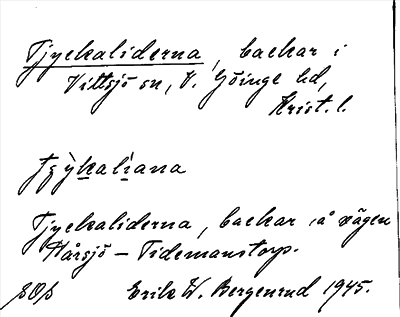 Tjyckaliderna, backar i
Vittsjö sn, V. Göinge hd,
Krist. l.
tjỳkalìana
Tjyckaliderna, backar å vägen
Hårsjö – Tidemanstorp.
Erik W. Bergenrud 1945.